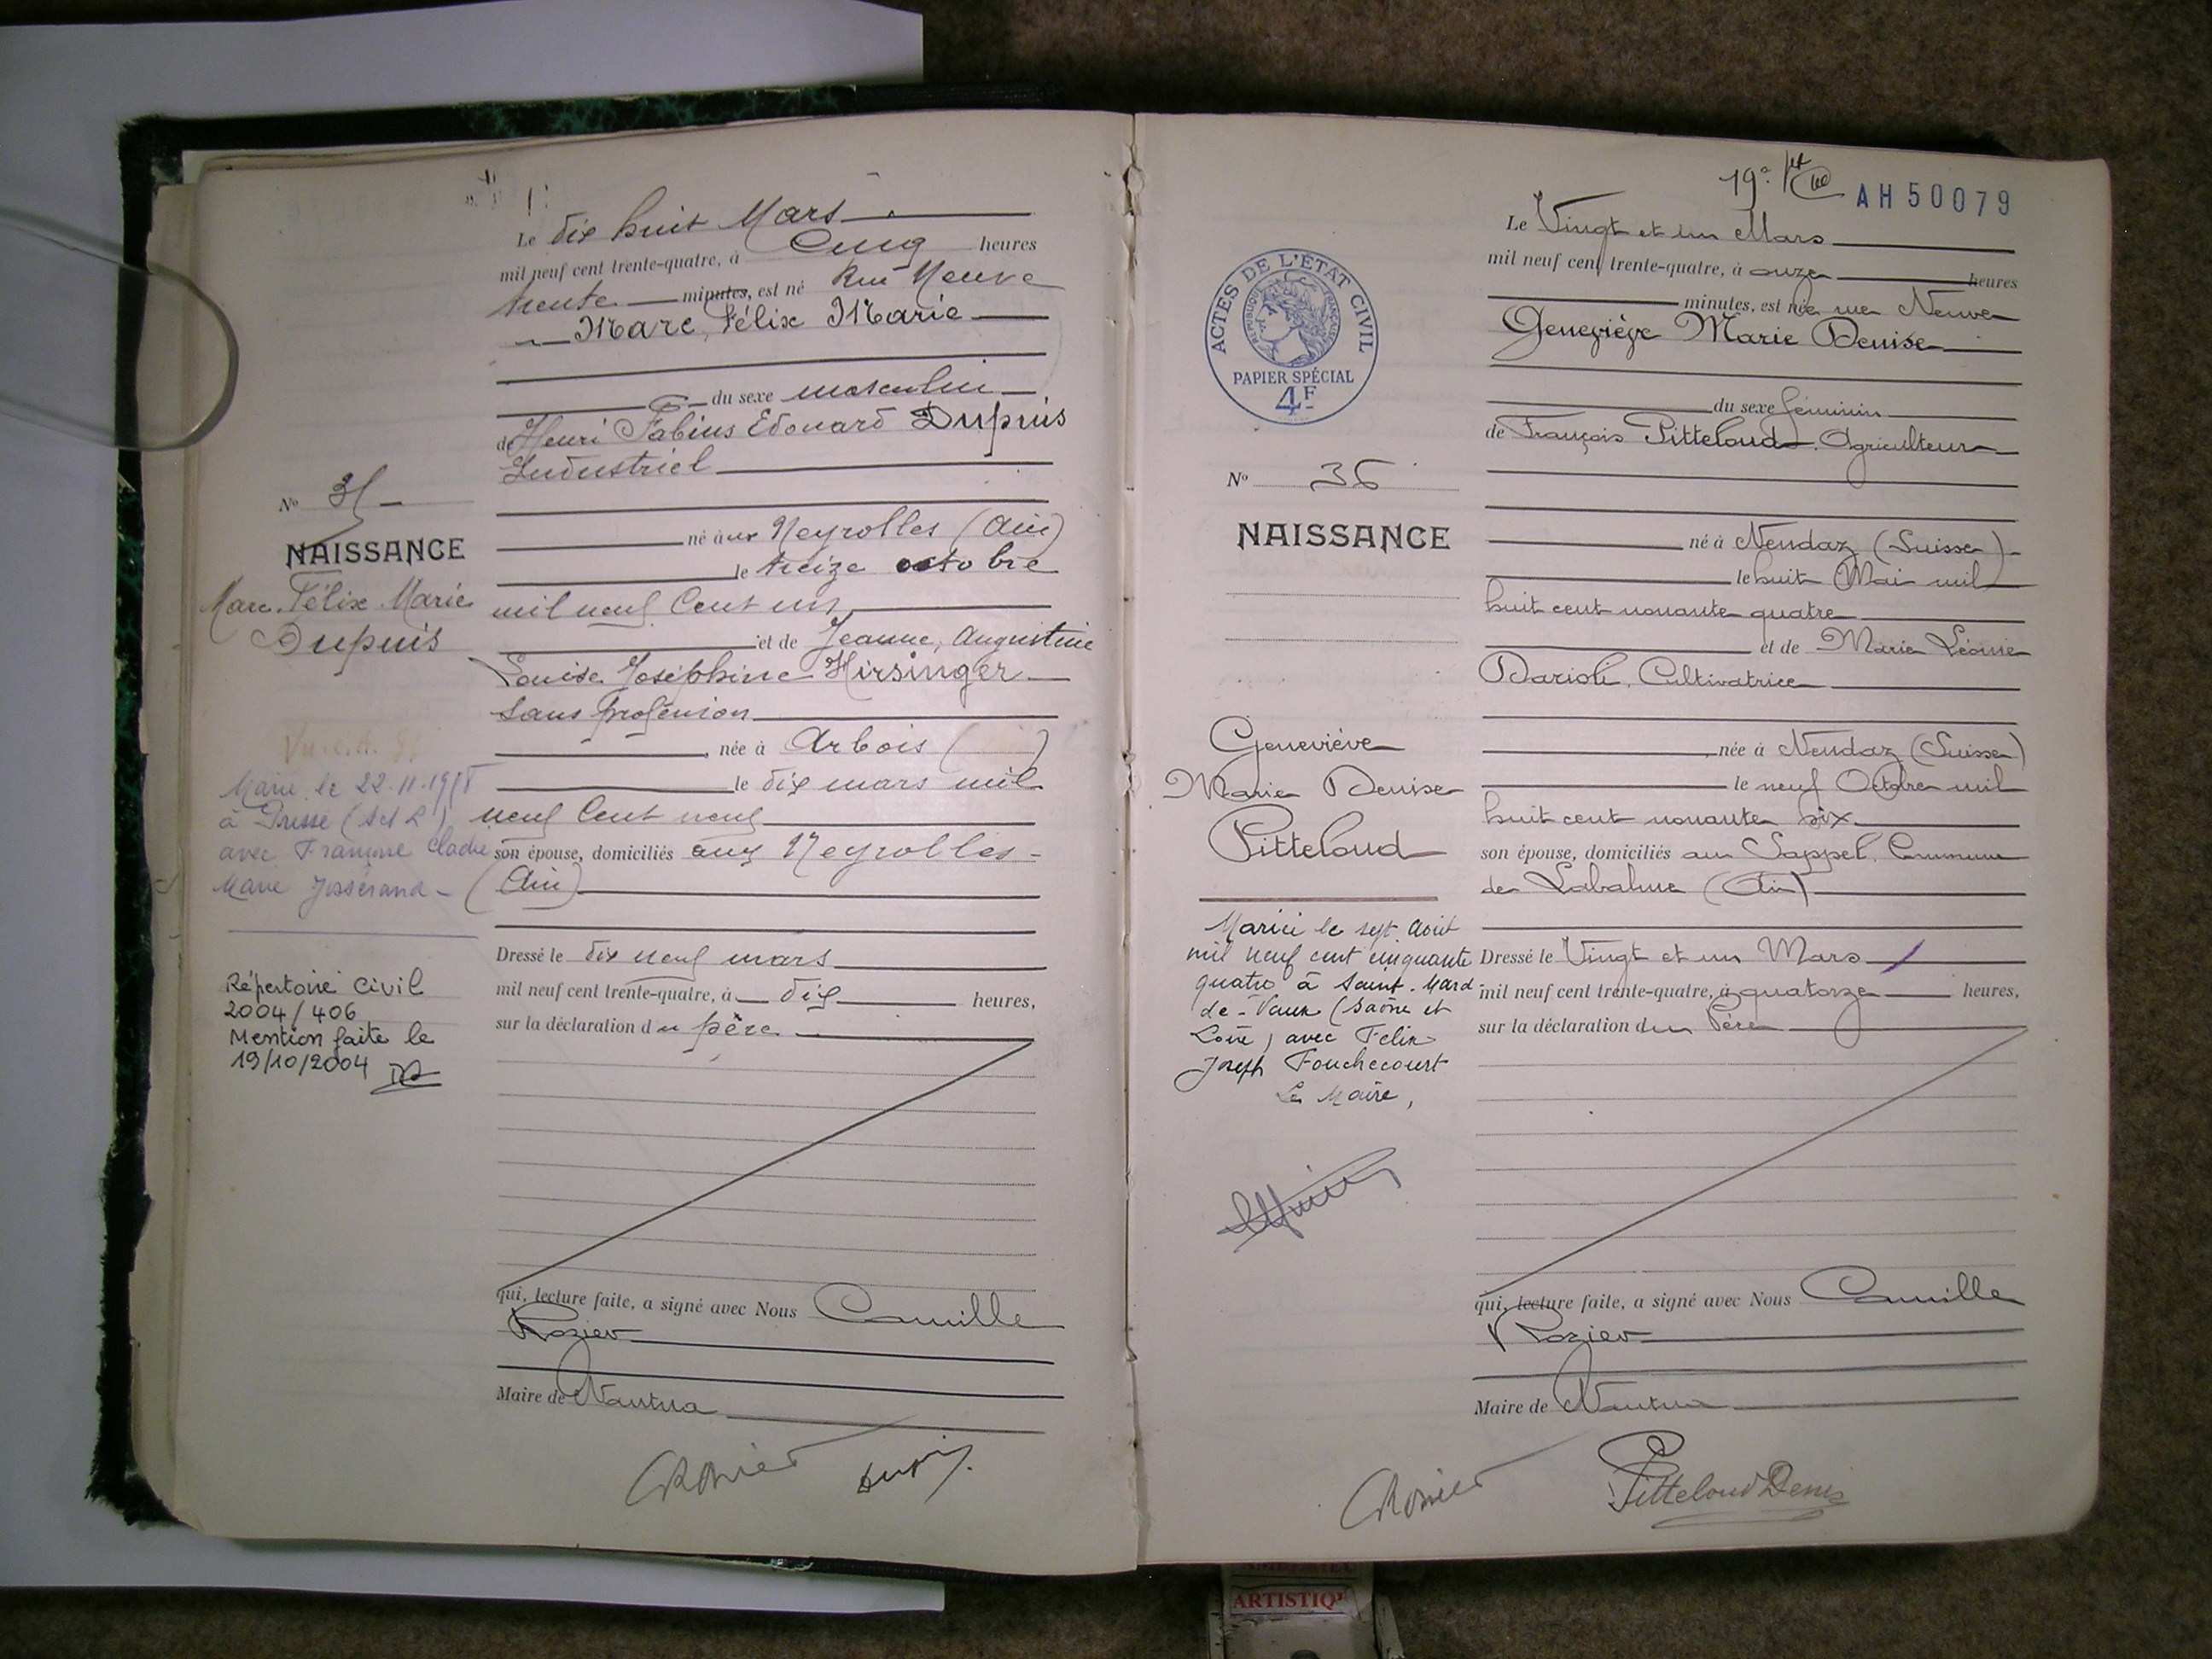 Le dix huit Mars
mil neuf cent trente-quatre, à Cinq heures
trente minutes, est né Rue Neuve
Marc, Félix Marie
du sexe masculin
de Henri Fabius Edouard Dupuis
Industriel
né aux Neyrolles (Ain)
le treize octobre
mil neuf Cent un
et de Jeanne, Augustine
Louise Joséphine Hirsinger
sans profession
née à Arbois ( )
le dix mars mil
neuf Cent neuf
son épouse, domiciliés aux Neyrolles
(Ain)
Dressé le dix neuf mars
mil neuf cent trente-quatre, à dix heures,
sur la déclaration du père
qui, lecture faite, a signé avec Nous Camille
Rozier
Maire de Nantua
Nº
NAISSANCE
Marc. Félix Marie
Dupuis
Marié le 22.11.
à (S et L)
avec
Marie Josserand
Répertoire Civil
2004/406
Mention faite le
19/10/2004
19e
AH50079
ACTES DE L'ÉTAT CIVIL
RÉPUBLIQUE FRANÇAISE
PAPIER SPÉCIAL
4F
Nº 36
NAISSANCE
Geneviève
Marie Denise
Pitteloud
Mariée le sept août
mil neuf cent cinquante
quatre à Saint-Mard
de-Vaux (Saône et
Loire) avec Félix
Joseph Fouchecourt
Le Maire,
Le Vingt et un Mars
mil neuf cent trente-quatre, à onze heures
minutes, est née rue Neuve
Geneviève Marie Denise
du sexe féminin
de François Pitteloud, Agriculteur
né à Nendaz (Suisse)
le huit Mai mil
huit cent nonante quatre
et de Marie Léonie
Darioli, Cultivatrice
née à Nendaz (Suisse)
le neuf Octobre mil
huit cent nonante six
son épouse, domiciliés au Sappel, Commune
de Labalme (Ain)
Dressé le Vingt et un Mars
mil neuf cent trente-quatre, à quatorze heures,
sur la déclaration du Père
qui, lecture faite, a signé avec Nous Camille
Rozier
Maire de Nantua
Pitteloud Denis
ARTISTIQ